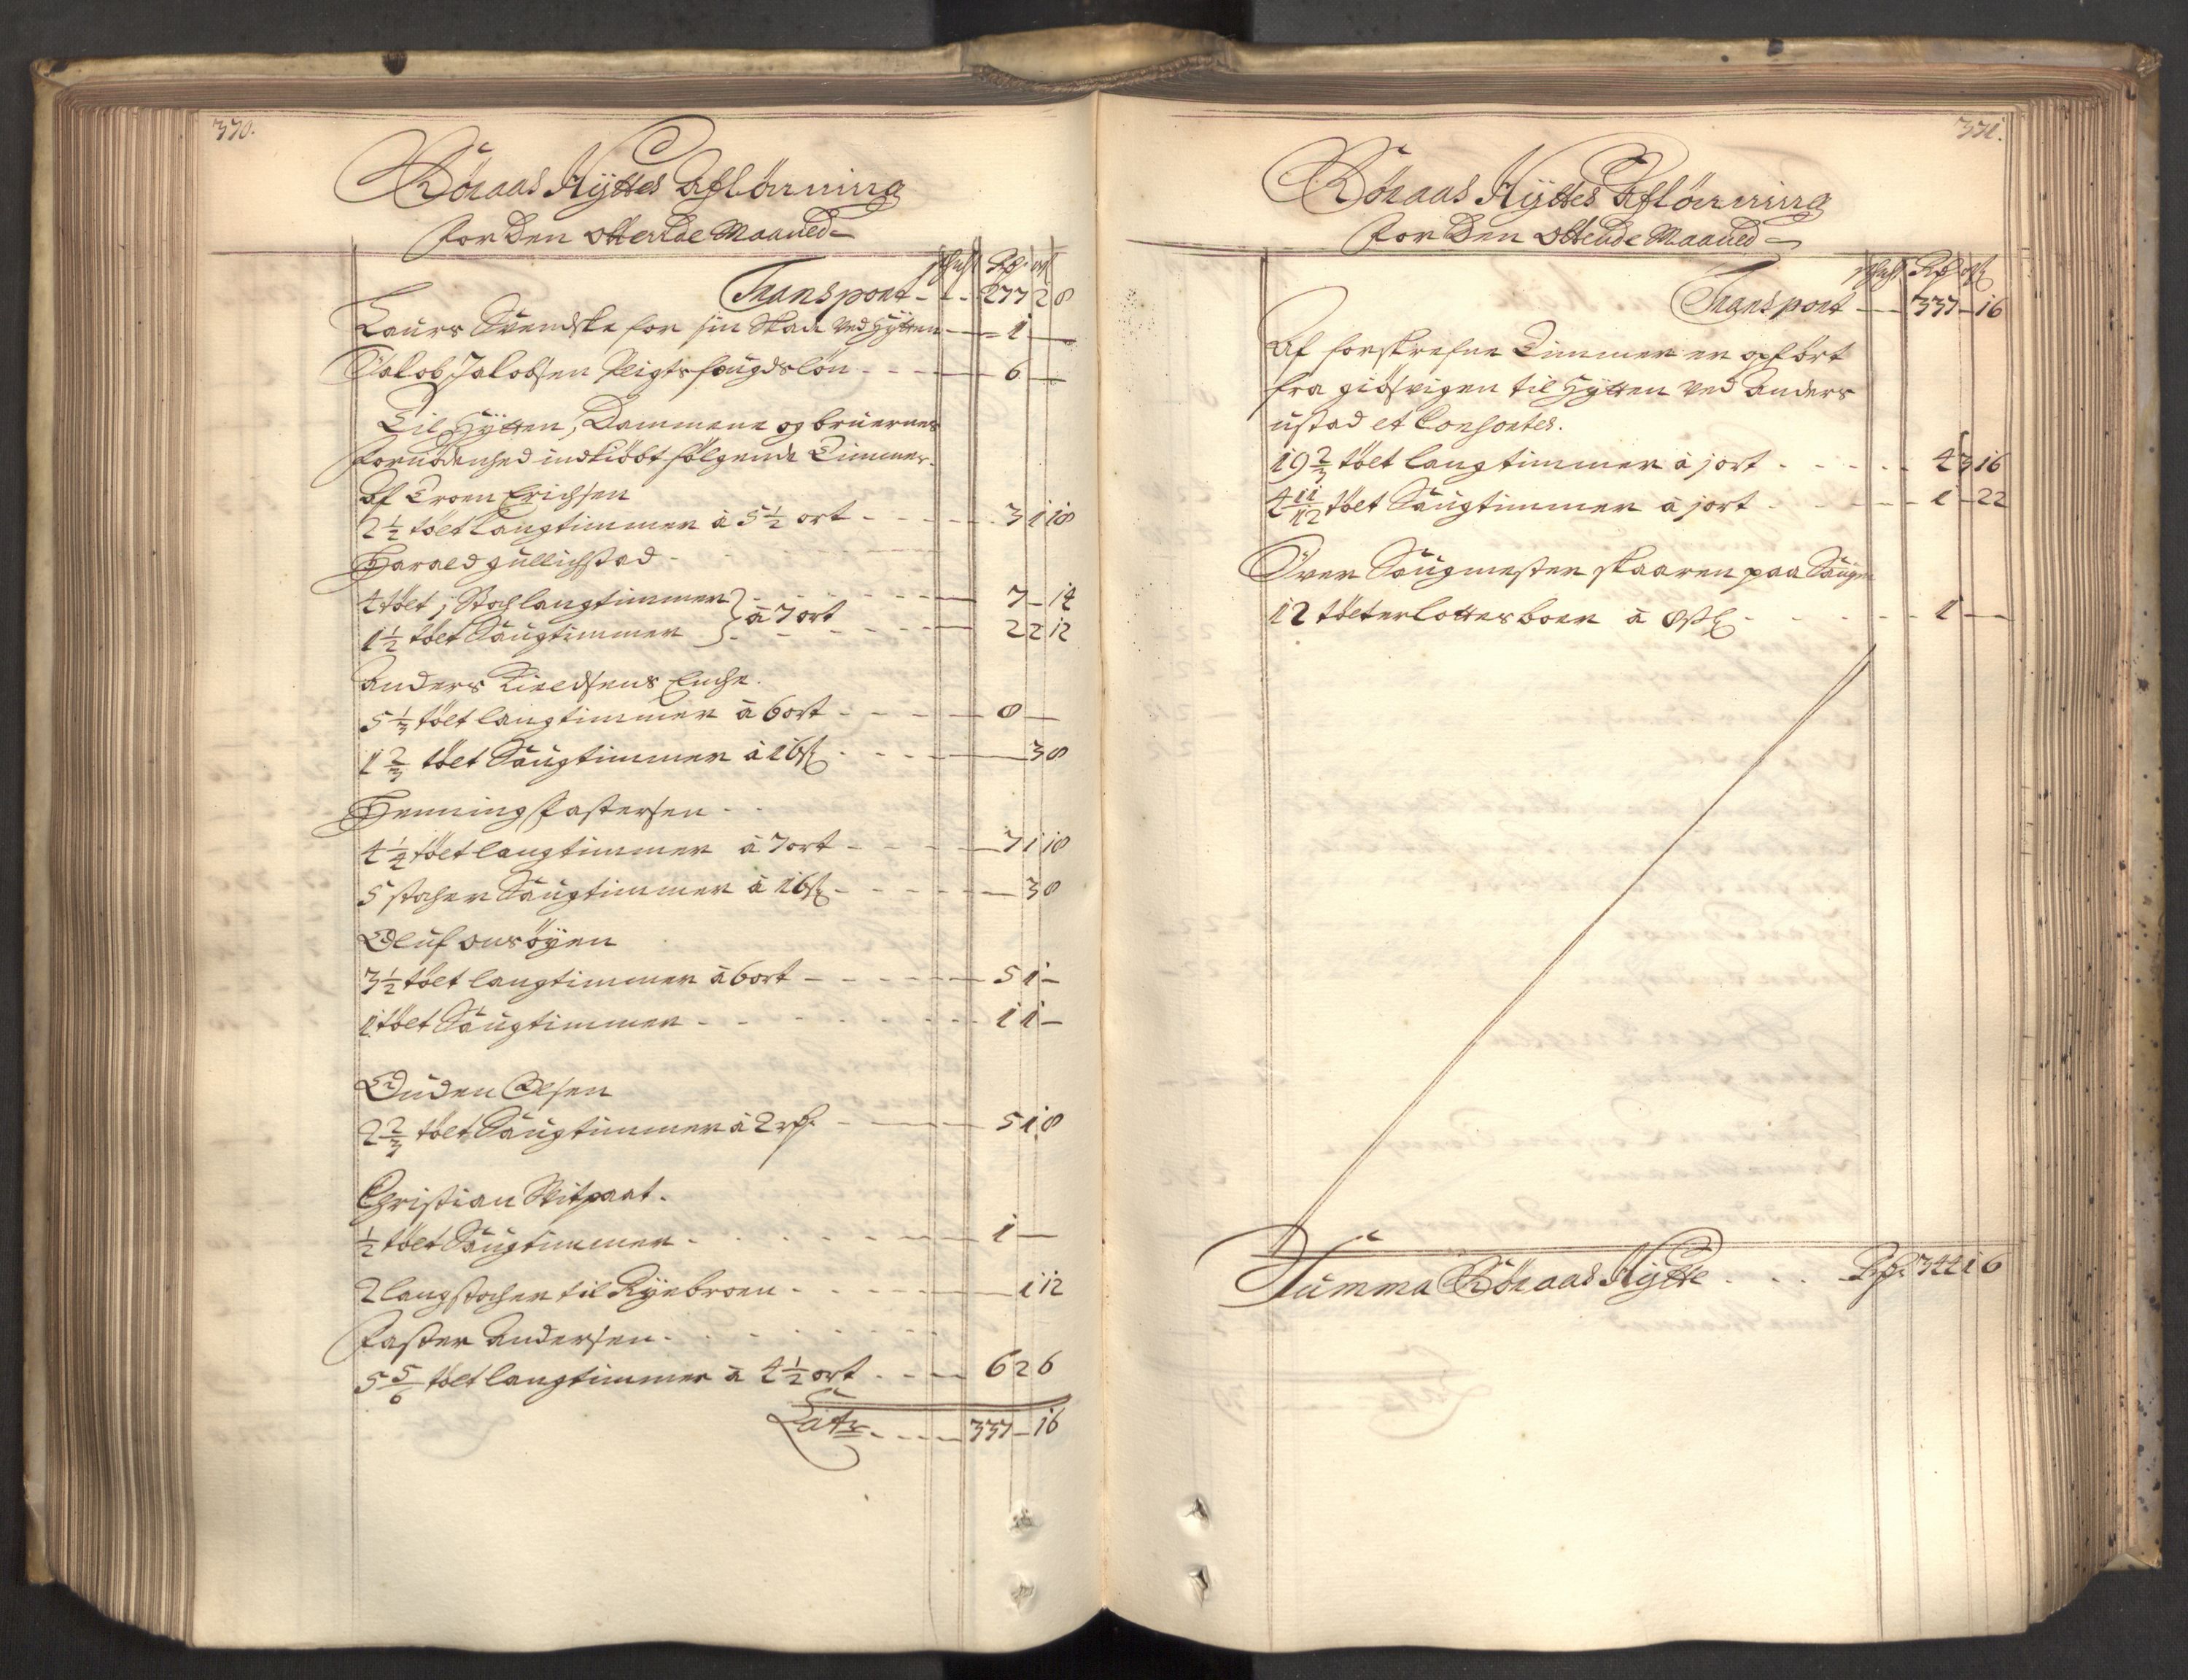 330.
Röraas Hyttes Aflönning
for den ottende Maaned
Skyld Rdr ort
Transport - - 277 2 8
Laurs Svendske for sin Skade ved Hytten - 1 -
Jakob Jakobsen Veigtsfougdslön - - - 6 -
Til Hytten, Dammene og bruernes
fornödenhed indkiöbt fölgende Timmer.
Af Troen Erichsen
2 1/2 tölt langtimmer à 5 1/2 ort - - - 3 1 18
Harald gullichstad -
4 tölt, 1 Stoch langtimmer - - - 7 - 14
1 1/2 tölt Saugtimmer } à 7 ort - - - 2 2 12
Anders Kieldsens Enche.
5 1/3 tölt langtimmer à 6 ort - - - 8 -
1 2/3 tölt Saugtimmer à 16 ß - - - 3 8
Henning fastersen - -
4 1/4 tölt langtimmer à 7 ort - - - 7 1 18
5 stocher Saugtimmer à 16 ß - - - 3 8
Oluf
3 1/2 tölt langtimmer à 6 ort - - - 5 1 -
1 tölt Saugtimmer - - - 1 1 -
Ouden Olsen
2 2/3 tölt Saugtimmer à 2 rdr - - - 5 1 8
Christian
1/2 tölt Saugtimmer - - - 1 -
2 langstocher til Ryebroen - - - 1 12
faster Andersen - - -
5 5/6 tölt langtimmer à 4 1/2 ort - - - 6 2 6
Latr - - - 337 - 16
331.
Röraas Hyttes Aflönning
for den ottende Maaned
Skyld Rdr ort ß
Transport - - 337 - 16
Af forskrefne Timmer er opfört
fra giösvigen til Hytten ved Anders
ustad et Consortes.
19 2/3 tölt langtimmer à 1 ort - - - 4 3 16
4 11/12 tölt Saugtimmer à 1 ort - - - 1 - 22
Over Saugmester skaaren paa Saugen
12 tölter lottesboer à 8 ß - - - 1 - -
Summa Röraas Hytte - - - Rdr 344 1 6